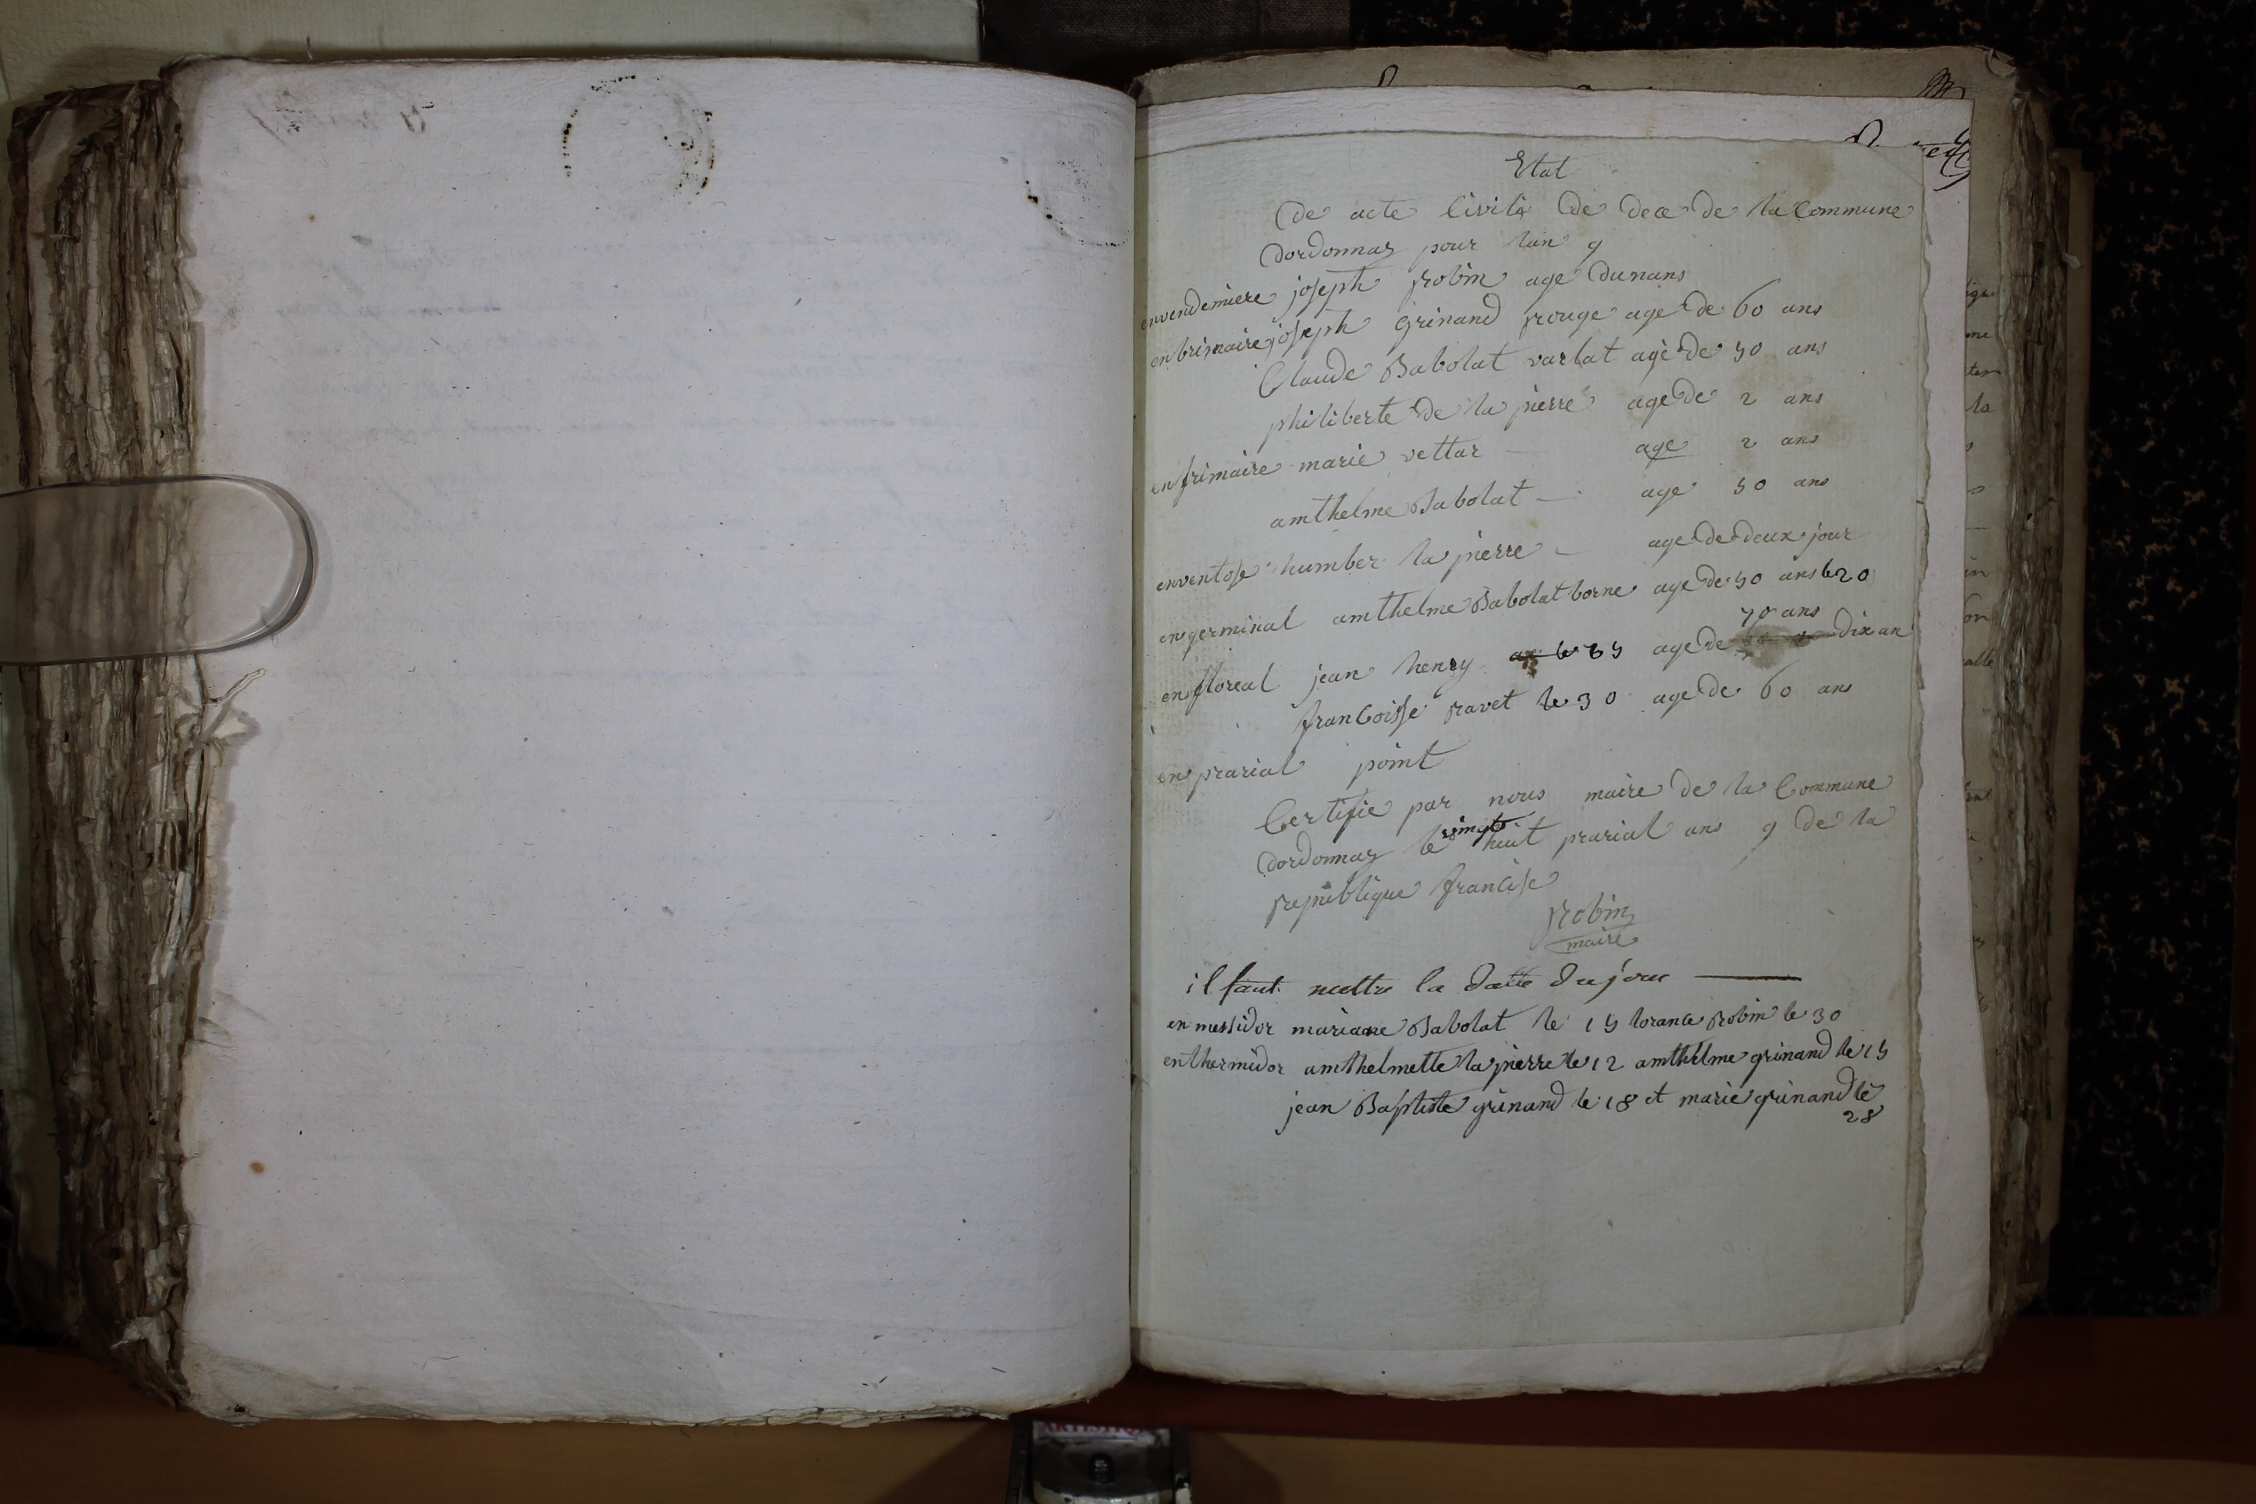 Etat
de acte Civile de dece de la Commune
dordonnas pour lan 9
envendemiere joseph Robin age dunans
enbrimaire joseph grinand Rouge age de 60 ans
Claude Babolat varlat agè de 50 ans
philiberte de la pierre age de 2 ans
enfrimaire marie vettar age 2 ans
amthelme Babolat age 50 ans
enventose humber la pierre age de deux jour
engerminal amthelme Babolat borne age de 50 ans le 20
70 ans
enfloreal jean henry le 25 age de dix an
francoisse Ravet le 30 age de 60 ans
en prarial point
Certifie par nous maire de la Commune
vingt
dordonnas le huit prarial ans 9 de la
Republique francise
Robin
maire
il faut mettre la datte du jour
en messidor mariane Babolat le 15 lorance Robin le 30
enthermidor amthelmette la pierre le 12 amthelme grinand le 15
jean Baptiste grinand le 18 et marie grinand le
28